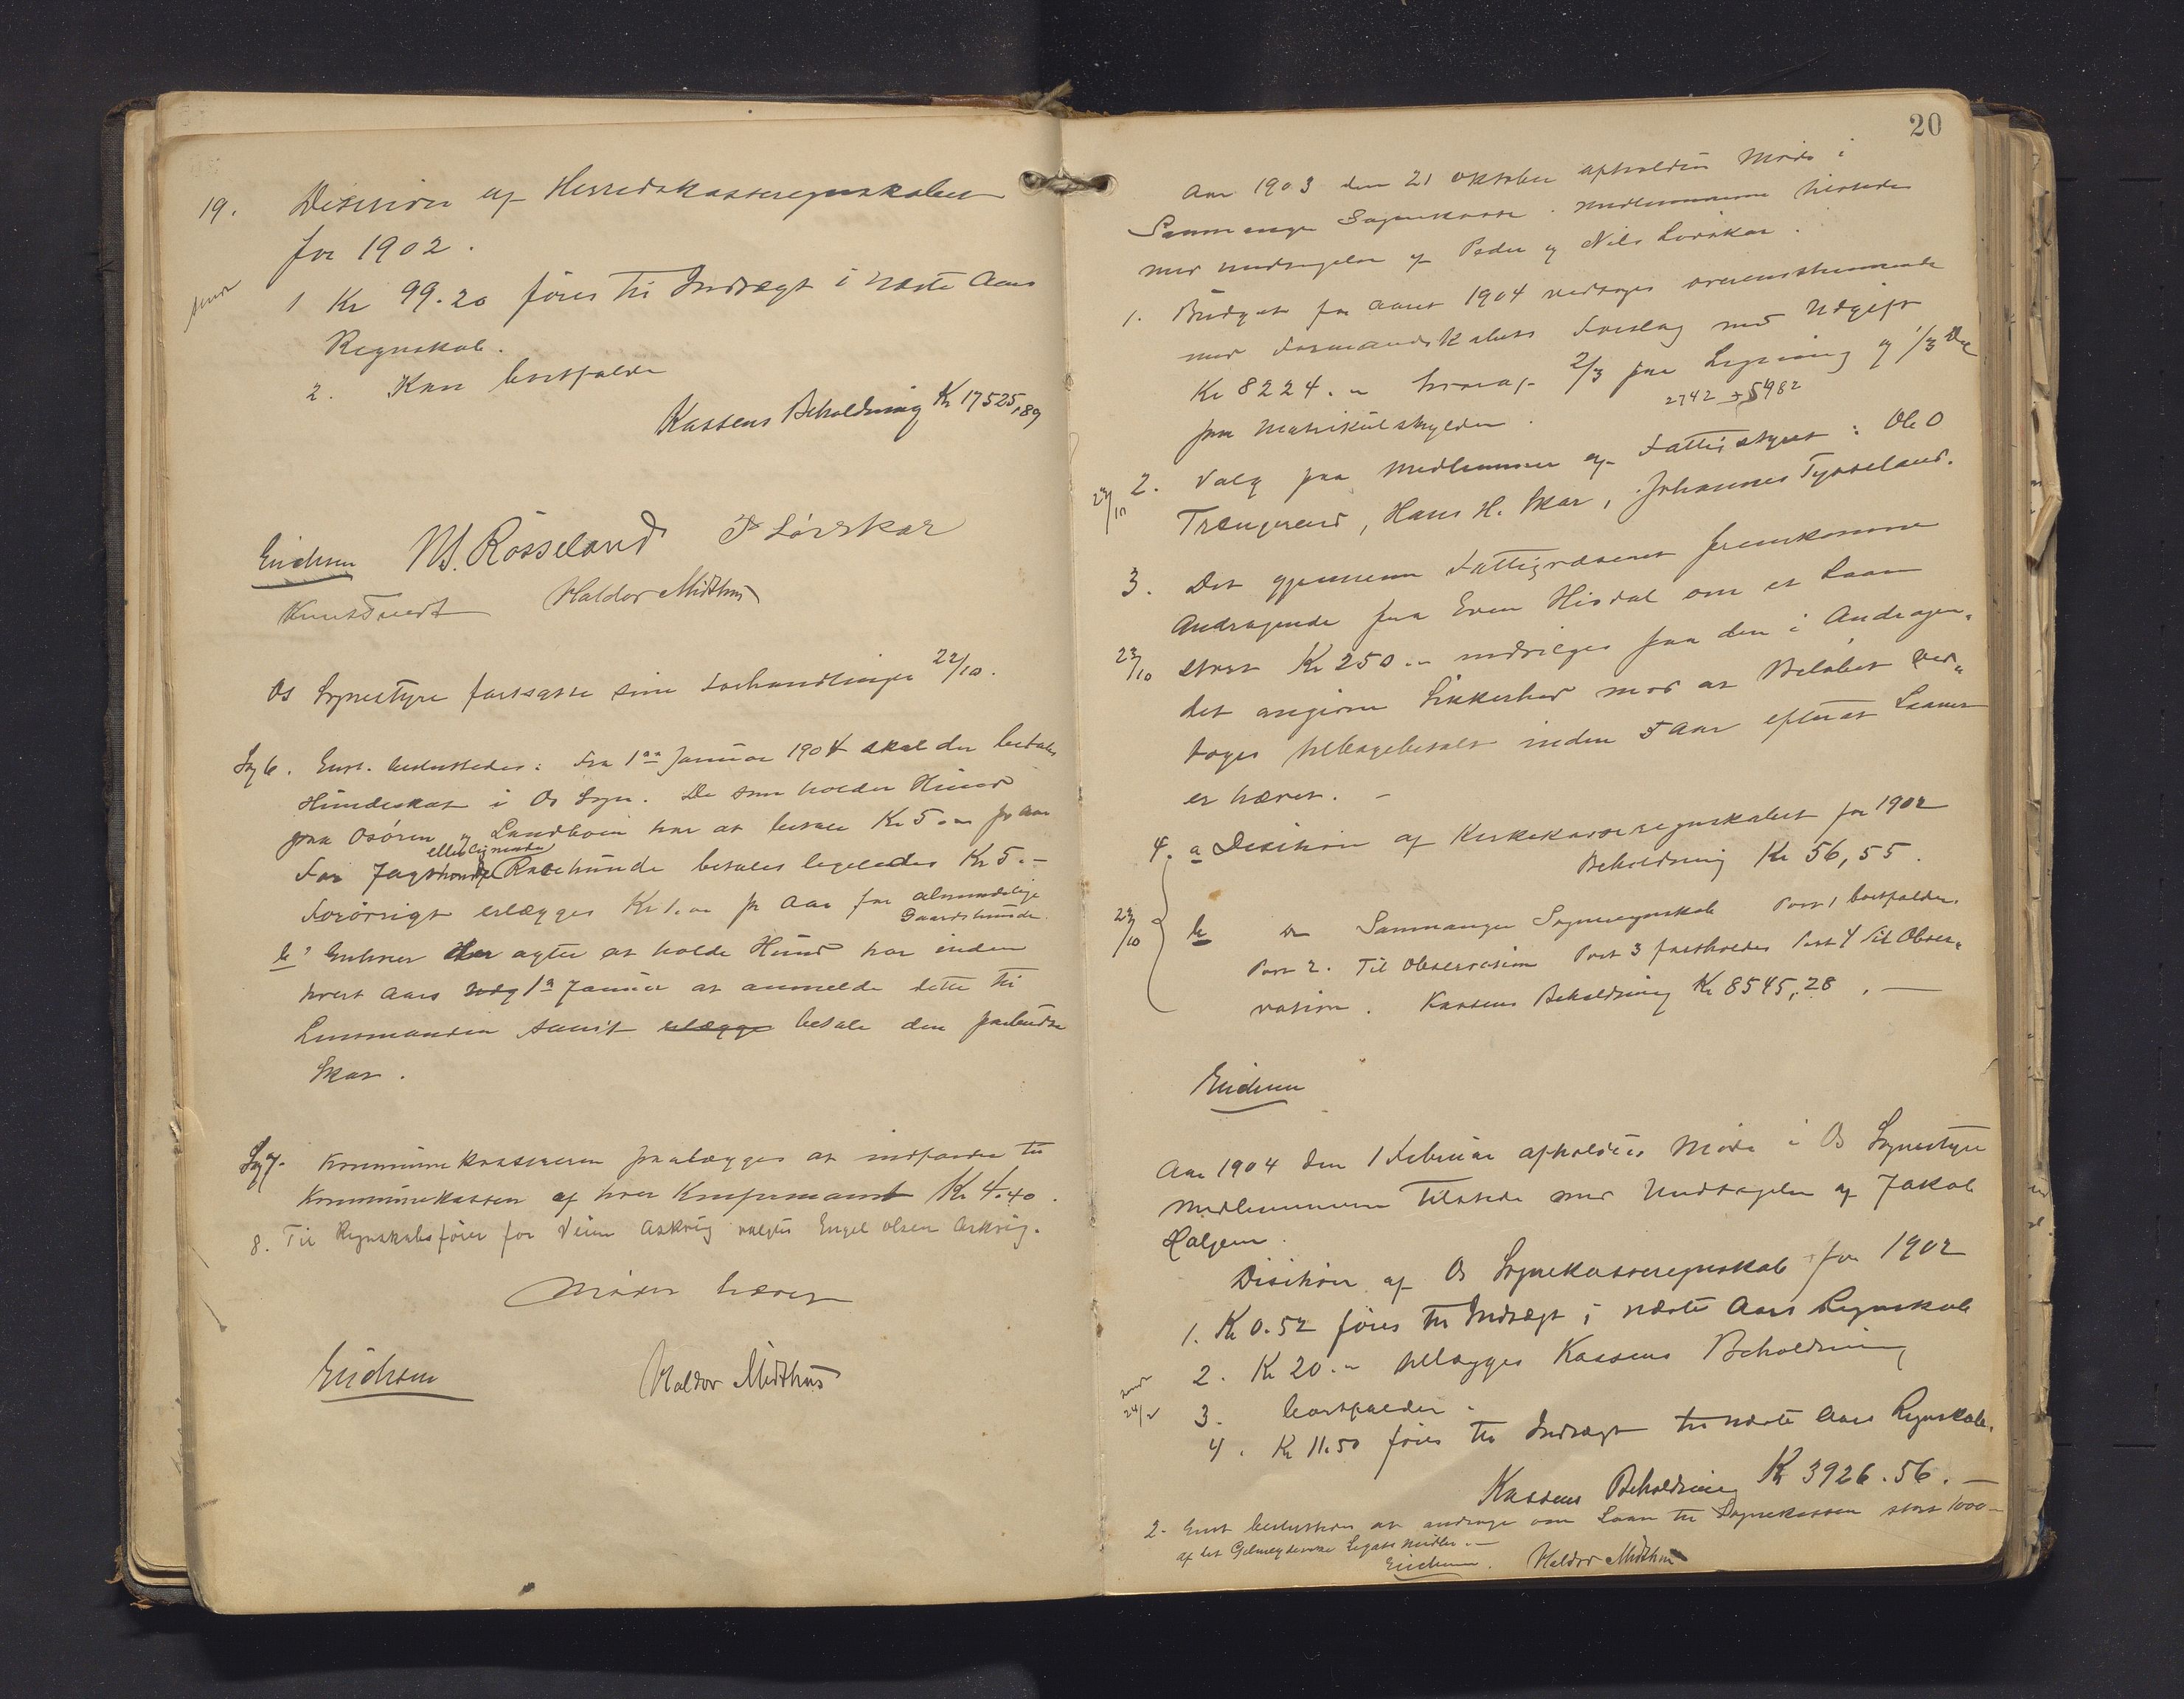 19. Desision af Herredskasseregnskabet
for 1902.
1 Kr 99.20 föres til Indtægt i næste Aars
Regnskab.
2. Kan bortfalde
Kassens Beholdning Kr 17525,89
Erichsen N. Rosseland P Lörskar
Knut Tveit Haldor Midthus
Os Sognestyre fortsatte sine Forhandlinger 22/10.
Sag 6. Enst. besluttedes: Fra 1ste Januar 1904 skal der betales
Hundeskat i Os Sogn. De som holder Hund
paa Osören og Landboen har at betale Kr 5.00 pr Aar
eller lignende
For Jagthunde Racehunde betales ligeledes Kr 5.-
Forövrigt erlægges Kr 1.00 pr Aar for almindelige
Gaardshunde.
b. Enhver der agter at holde Hund har inden
hvert Aars 1ste Januar at anmelde dette til
Lensmanden samt erlægge betale den paabudte
Skat.
Sag 7. Kommunekassereren paalægges at indfordre til
Kommunekassen af hver Kr 4.40.
8. Til Regnskabsförer for Veien Askvig valgtes Engel Olsen Askvig.
Mödet hævet
Erichsen Haldor Midthus
20
Aar 1903 den 21 Oktober afholdtes Möde i
Samnanger Sognekasse. Medlemmerne tilstede
med undtagelse af Peder og Nils Lörskar.
1. Budget for Aaret 1904 vedtoges overensstemmende
med Formandskabets Forslag med Udgift
Kr 8224.00 hvoraf 2/3 paa Ligning og 1/3 Del
2742 5482
paa Matrikulskylden.
22/10 2. Valg paa Medlemmer af Fattigstyret: Ole O
Trængereid, Hans H. Skar, Johannes Tysseland.
3. Det gjennem Fattigvæsenet fremkomne
Andragende fra Even Hisdal om et Laan
22/10 stort Kr 250.00 indvilges paa den i Andragen-
det angivne Sikkerhed mod at Belöbet ved-
tages tilbagebetalt inden 5 Aar efterat Laanet
er hævet. -
4. a Desision af Kirkekasseregnskabet for 1902
Beholdning Kr 56,55.
22/10 b Do Samnanger Sogneregnskab Post 1 bortfalder.
Post 2. Til Observasion Post 3 fastholdes Post 4 Til Obser-
vasion. Kassens Beholdning Kr 8545,28. -
Erichsen
Aar 1904 den 1 Februar afholdtes Möde i Os Sognestyre
Medlemmerne tilstede med Undtagelse af Jakob
Haljem.
Desision af Os Sognekasseregnskab for 1902
1. Kr 0.52 föres til Indtægt i næste Aars Regnskab
2. Kr 20.00 tillægges Kassens Beholdning
24/2 3. bortfalder.
4. Kr 11.50 föres til Indtægt til næste Aars Regnskab.
Kassens Beholdning Kr 3926.56. -
2. Enst besluttedes at andrage om Laan til Sognekassen stort 1000-
af det Legats midler. -
Erichsen. Haldor Midthus